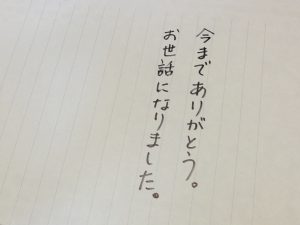 今までありがとう。
お世話になりました。